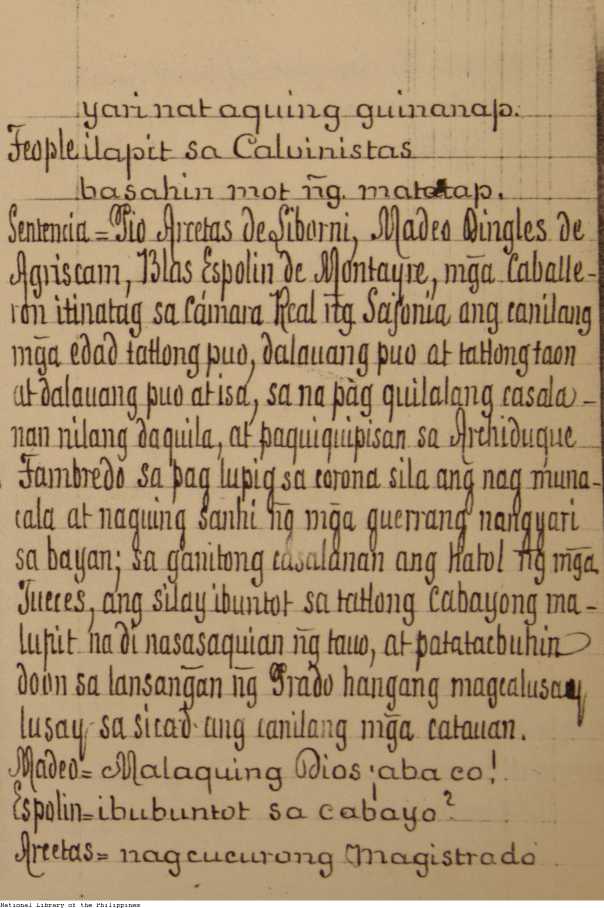 yari nat aquing guinanap.
Feople ilapit sa Calvinistas
basahin mot ñg. matatap.
Sentencia = Pio Arcetas de Siborni, Madeo Dingles de
Agriscam, Blas Espolin de Montayre, mg̃a Caballe-
ron itinatag sa Cámara Real ñg Sajonia ang canilang
mg̃a edad tatlong puo, dalauang puo at tatlong taon
at dalauang puo at isa, sa na pag quilalang casala-
nan nilang daquila, at paquiquipisan sa Archiduque
Fambredo sa pag lupig sa corona sila ang nag muna-
cala at naguing sanhi ñg mg̃a guerrang nangyari
sa bayan; sa ganitong casalanan ang hatol ñg mg̃a
Jueces, ang silay ibuntot sa tatlong Cabayong ma-
lupit na di nasasaquian ñg tauo, at patatacbuhin
doon sa lansan̄gan ñg Prado hangang magcalusay
lusay sa sicad ang canilang mg̃a catauan.
Madeo= Malaquing Dios aba co!
Espolin= ibubuntot sa cabayo?
Arcetas= nagcucurong Magistrado
National Library of the Philippines